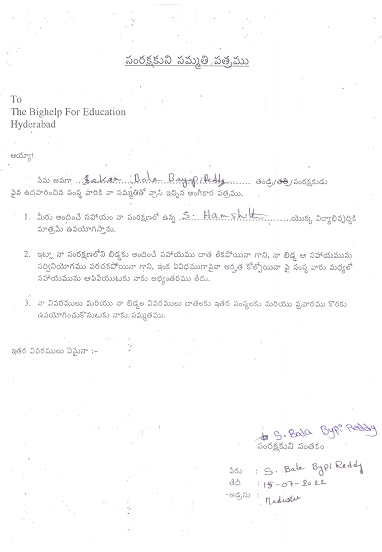 సంరక్షకుని సమ్మతి పత్రము
To
The Bighelp For Education
Hyderabad
అయ్యా!
నేను అనగా Bala Bypi/Reddy తండ్రి/తల్లి/సంరక్షకుడు
పైన ఉదహరించిన సంస్థ వారికి నా సమ్మతితో వ్రాసి ఇచ్చిన అంగీకార పత్రము.
1. మీరు అందించే సహాయం నా సంరక్షణలో ఉన్న S. Harshit యొక్క విద్యాభివృద్ధికి
మాత్రమే ఉపయోగిస్తాను.
2. ఇట్లు నా సంరక్షణలోని బిడ్డకు అందించే సహాయము దాత లేకపోయినా గాని, నా బిడ్డ ఆ సహాయమును
సద్వినియోగము పరచకపోయినా గాని, ఇంక ఏవిధముగానైనా అర్హత కోల్పోయినా పై సంస్థ వారు మధ్యలో
సహాయమును ఆపివేయుటకు నాకు అభ్యంతరము లేదు.
3. నా వివరములు మరియు నా బిడ్డల వివరములు దాతలకు ఇతర సంస్థలకు మరియు ప్రచారము కొరకు
ఉపయోగించుకొనుటకు నాకు సమ్మతము.
ఇతర వివరములు ఏమైనా :-
S. Bala Bypi Reddy
సంరక్షకుని సంతకం
పేరు : S. Bala Bypi/Reddy
తేదీ : 15-07-2022
అడ్రసు :